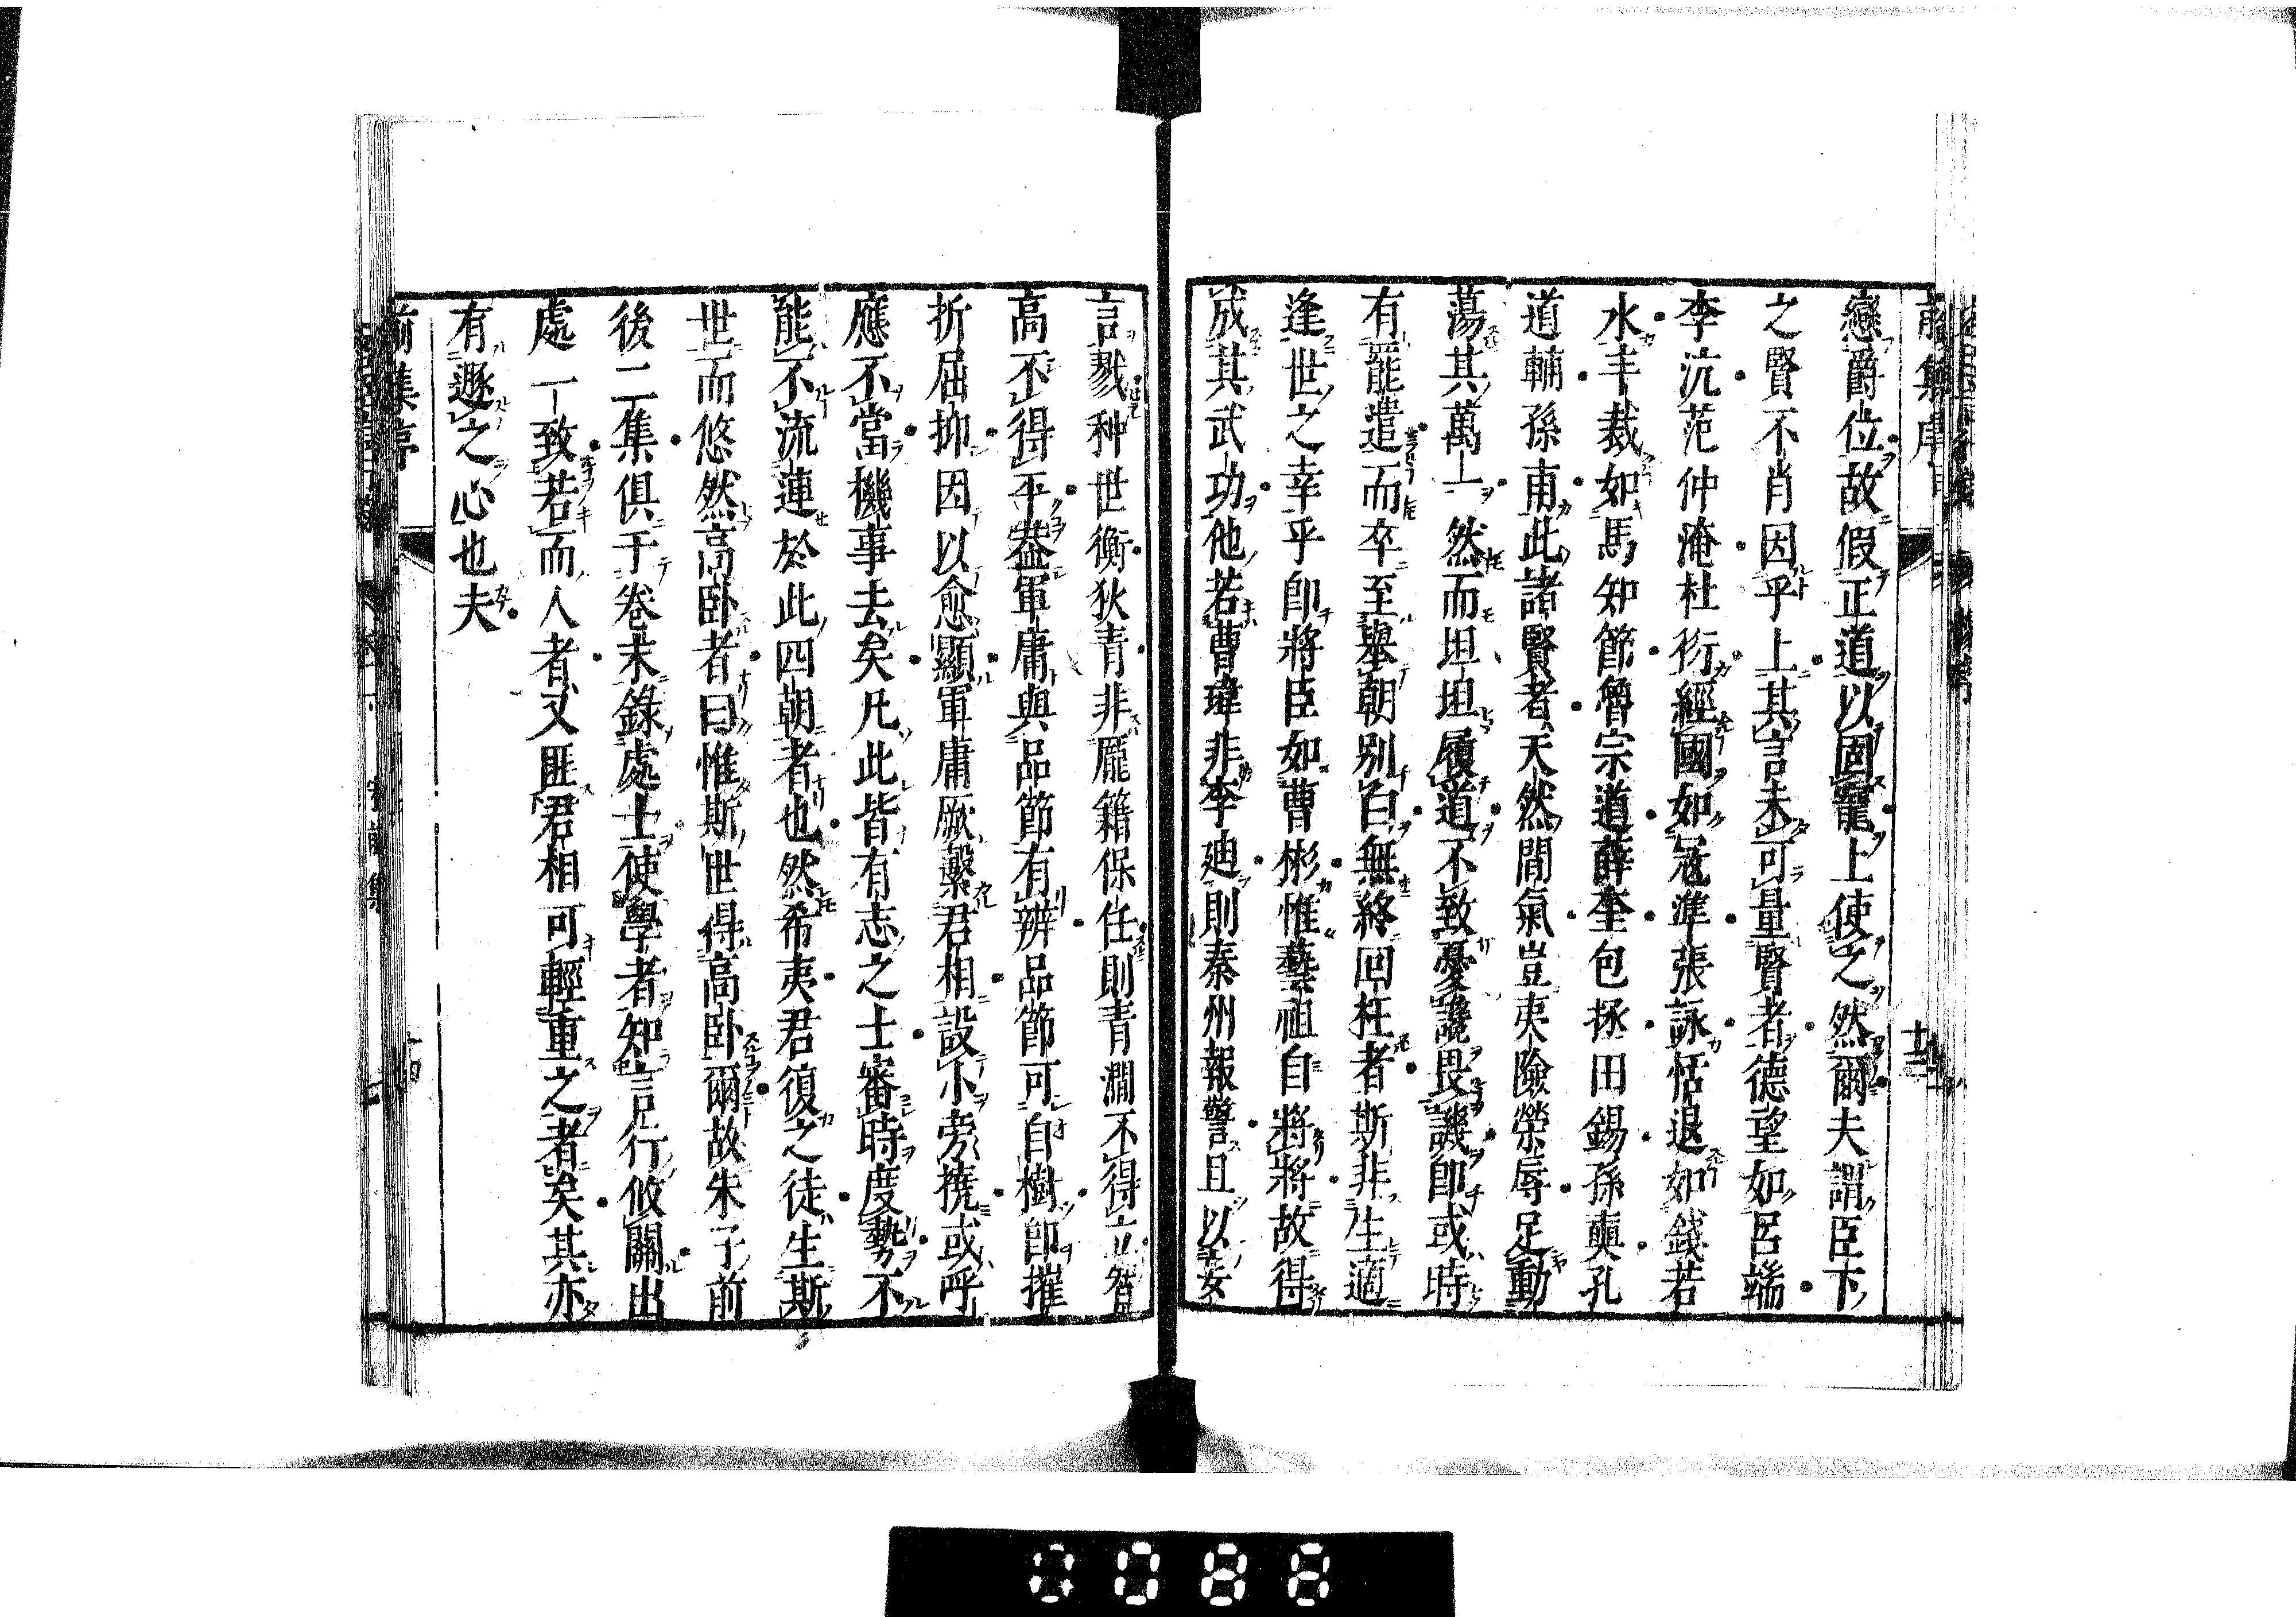 戀爵位故假正道以固寵上使之然爾夫謂臣下
之賢不肖因乎上其言未可量賢者德望如呂端
李沆范仲淹杜衍經國如寇準張詠恬退如錢若
水丰裁如馬知節魯宗道薛奎包拯田錫孫奭孔
道輔孫甫此諸賢者天然間氣豈夷險榮辱足動
蕩其萬一然而坦坦履道不致憂讒畏譏即或時
有罷遣而卒至舉朝別白無終回枉者斯非生適
逢世之幸乎即將臣如曹彬惟藝祖自將將故得
成其武功他若曹瑋非李迪則秦州報警且以妄
言戮种世衡狄青非龐籍保任則青澗不得立智
高不得平蓋軍庸與品節有辨品節可自樹即摧
折屈抑因以愈顯軍庸厥繫君相設小旁撓或呼
應不當機事去矣凡此皆有志之士審時度勢不
能不流連於此四朝者也然希夷君復之徒生斯
世而悠然高卧者曰惟斯世得高卧爾故朱子前
後二集俱于卷末錄處士使學者知言行攸關出
處一致若而人者又匪君相可輕重之者矣其亦
有遯之心也夫
前集序
十四